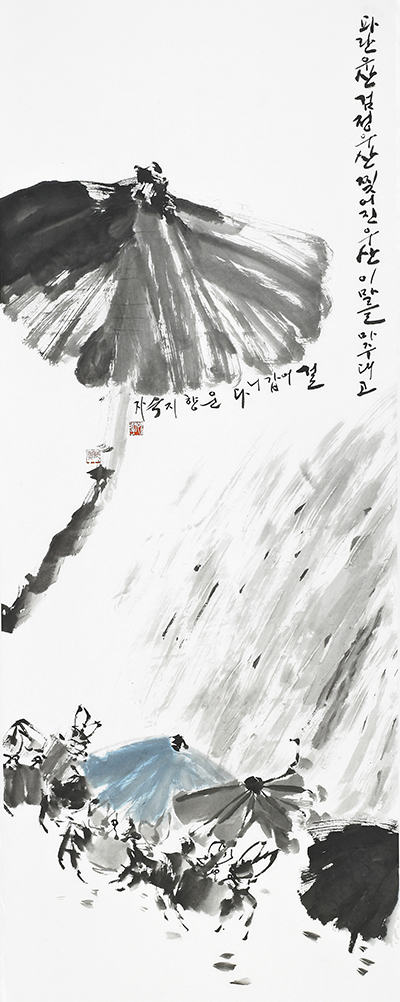 파란우산 검정우산 찢어진우산 이마를 마주대고
걸어갑니다 은향 지숙자